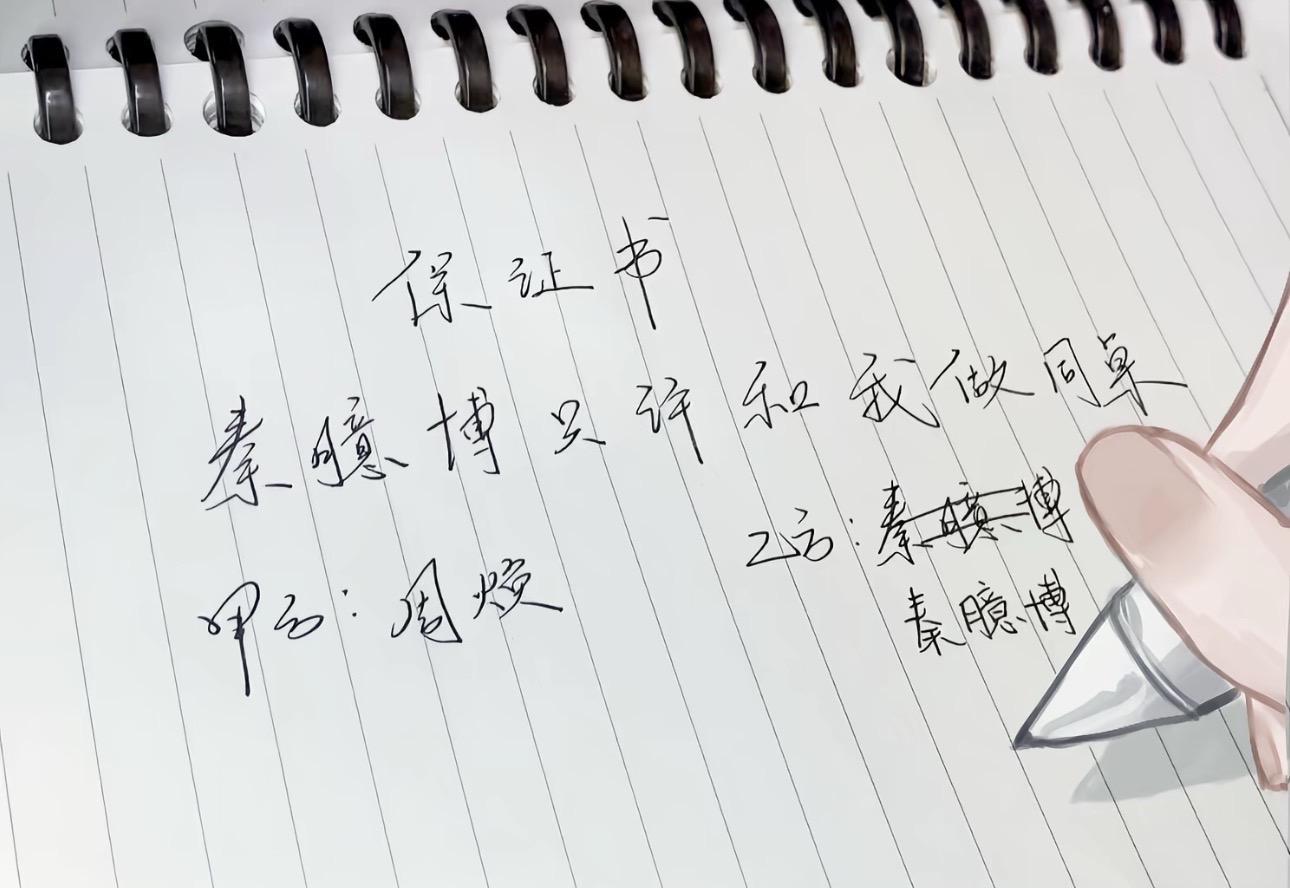 保证书
秦臆博只许和我做同桌
甲方：周焕
乙方：秦臆博
秦臆博